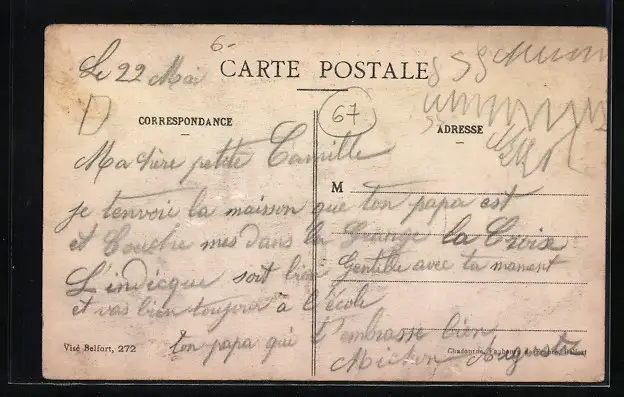 6-
Le 22 Mai CARTE POSTALE
67
CORRESPONDANCE
ADRESSE
Ma chère petite Camille
M
je tenvoie la maison que ton papa est
et Couche mes dans la Grange la Croix
L'indicque soit bien Gentille avec ta mamant
et vas bien toujour à l'école
ton papa qui t'embrasse bien
Visé Belfort, 272
Auguste